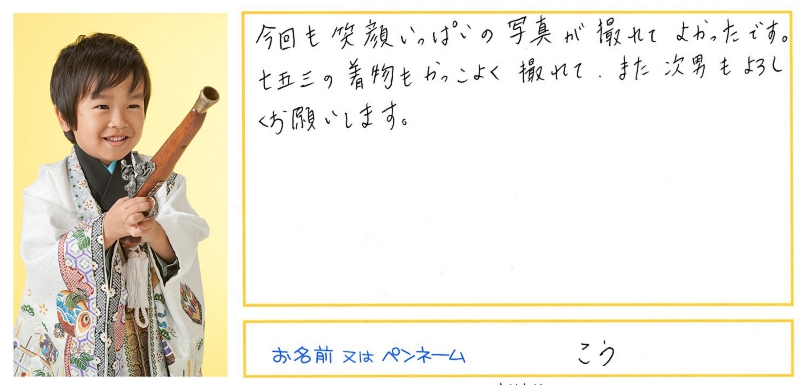 今回も笑顔いっぱいの写真が撮れてよかったです。
七五三の着物もかっこよく撮れて、また次男もよろし
くお願いします。
お名前又はペンネーム こう